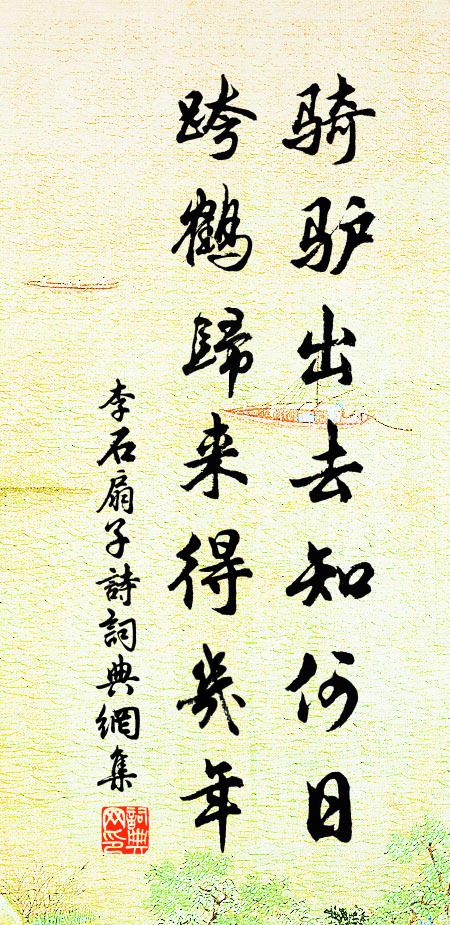 骑驴出去知何日
跨鹤歸来得幾年
李石扇子詩詞典網集
詞典网印